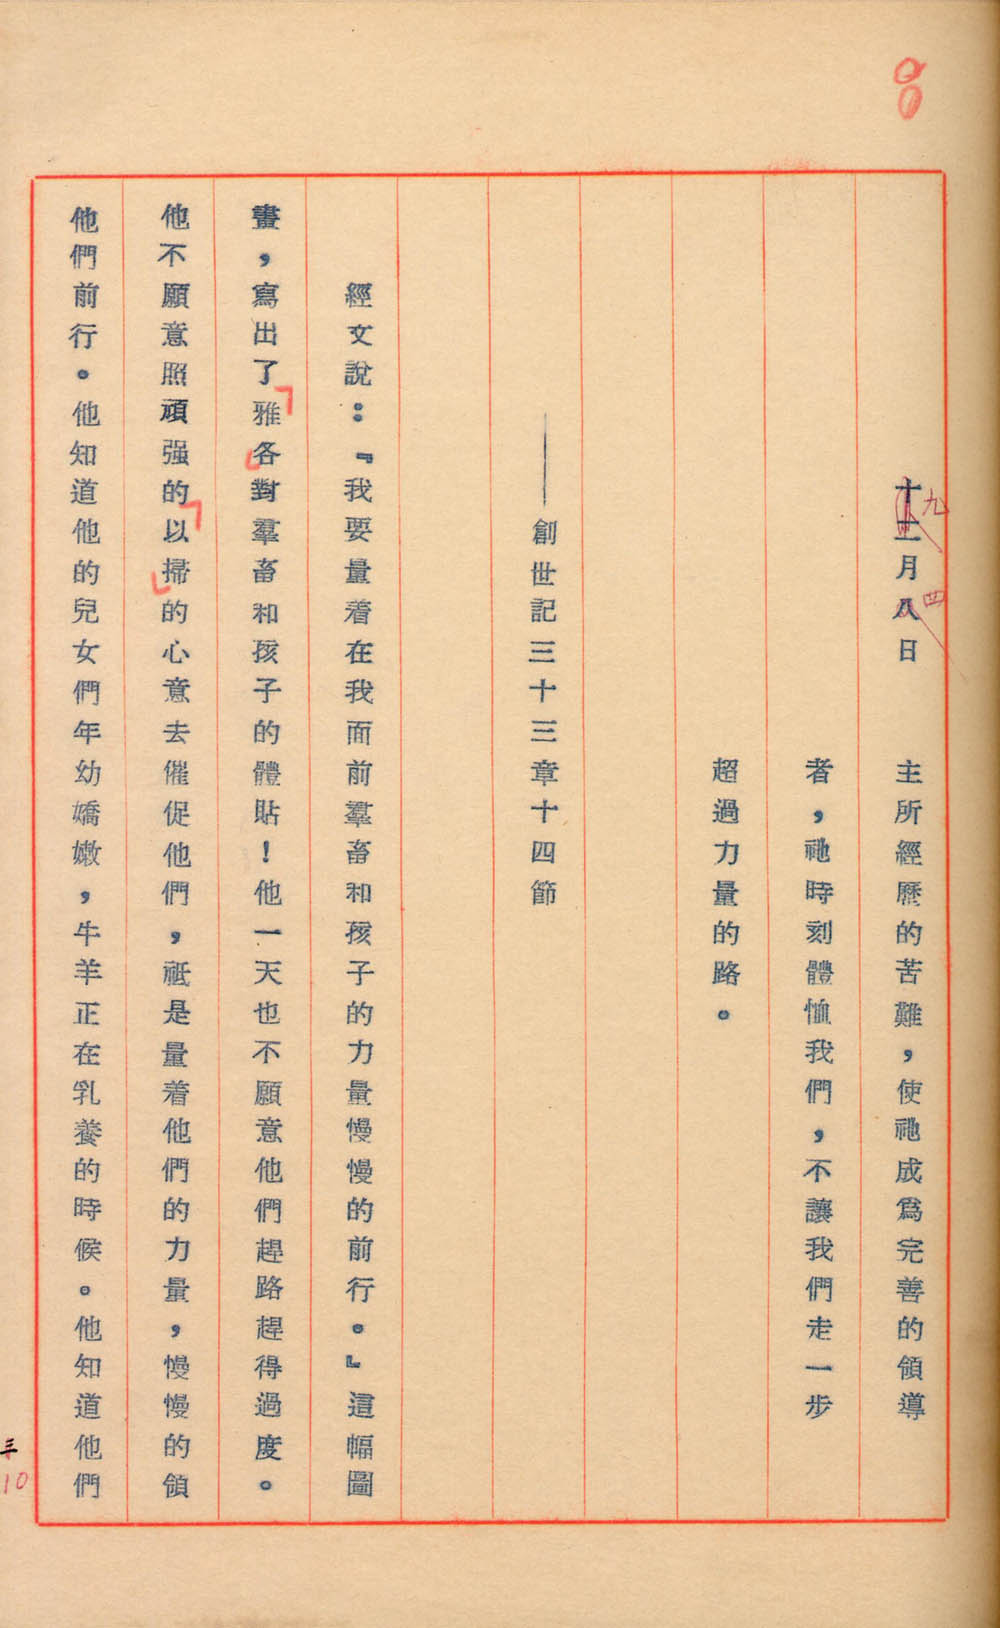 8
十二月八日
九
四
主所經歷的苦難，使祂成爲完善的領導
者，祂時刻體恤我們，不讓我們走一步
超過力量的路。
——創世記三十三章十四節
經文說：『我要量着在我面前羣畜和孩子的力量慢慢的前行。』這幅圖
畫，寫出了「雅各」對羣畜和孩子的體貼！他一天也不願意他們趕路趕得過度。
他不願意照頑强的「以掃」的心意去催促他們，祇是量着他們的力量，慢慢的領
他們前行。他知道他的兒女們年幼嬌嫩，牛羊正在乳養的時候。他知道他們
10